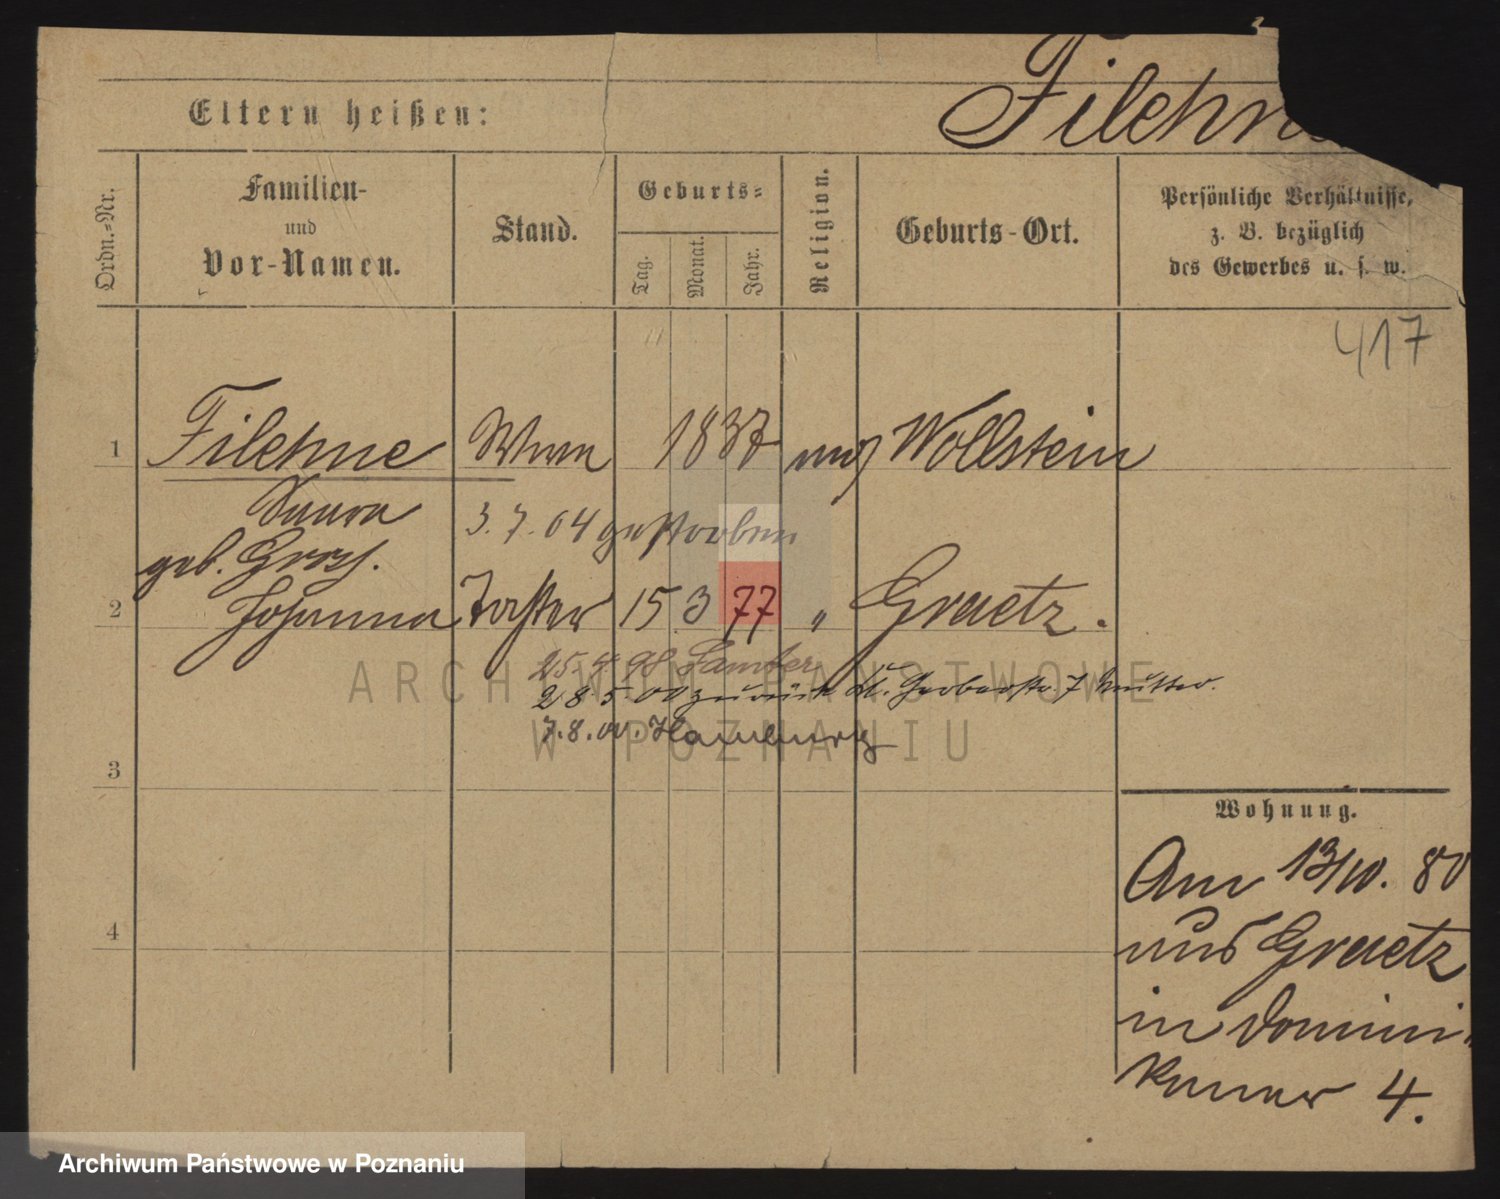 Filehne
Eltern heißen:
Ordn.=Nr.
Familien-
und
Vor-Namen.
Stand.
Geburts=
Tag.
Monat.
Jahr.
Religion.
Geburts-Ort.
Persönliche Verhältnisse,
z. B. bezüglich
des Gewerbes u. s. w.
417
1 Filehne Wwe 1837 mos Wollstein
Laura
3.7.04 gestorben
geb. Gross.
2 Johanna Tochter 15 3 77 " Graetz.
25.4.98 Samter
28.5.00 zurück Gerberstr. 7 Mutter.
7.8.00. Hamburg
3
4
Wohnung.
Am 13/10. 80
aus Graetz
in Domini-
kaner 4.
ARCHIWUM PAŃSTWOWE
W POZNANIU
Archiwum Państwowe w Poznaniu